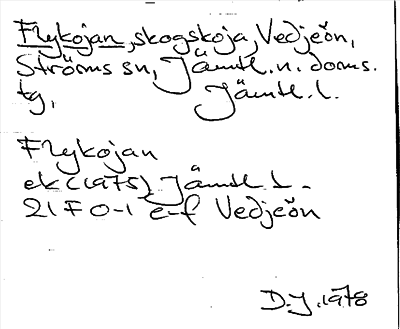 Flykojan, skogskoja, Vedjeön,
Ströms sn, Jämtl. n. doms.
tg, Jämtl. l.
Flykojan
ek (1975) Jämtl. l.
21 F 0-1 e-f Vedjeön
D.J. 1978